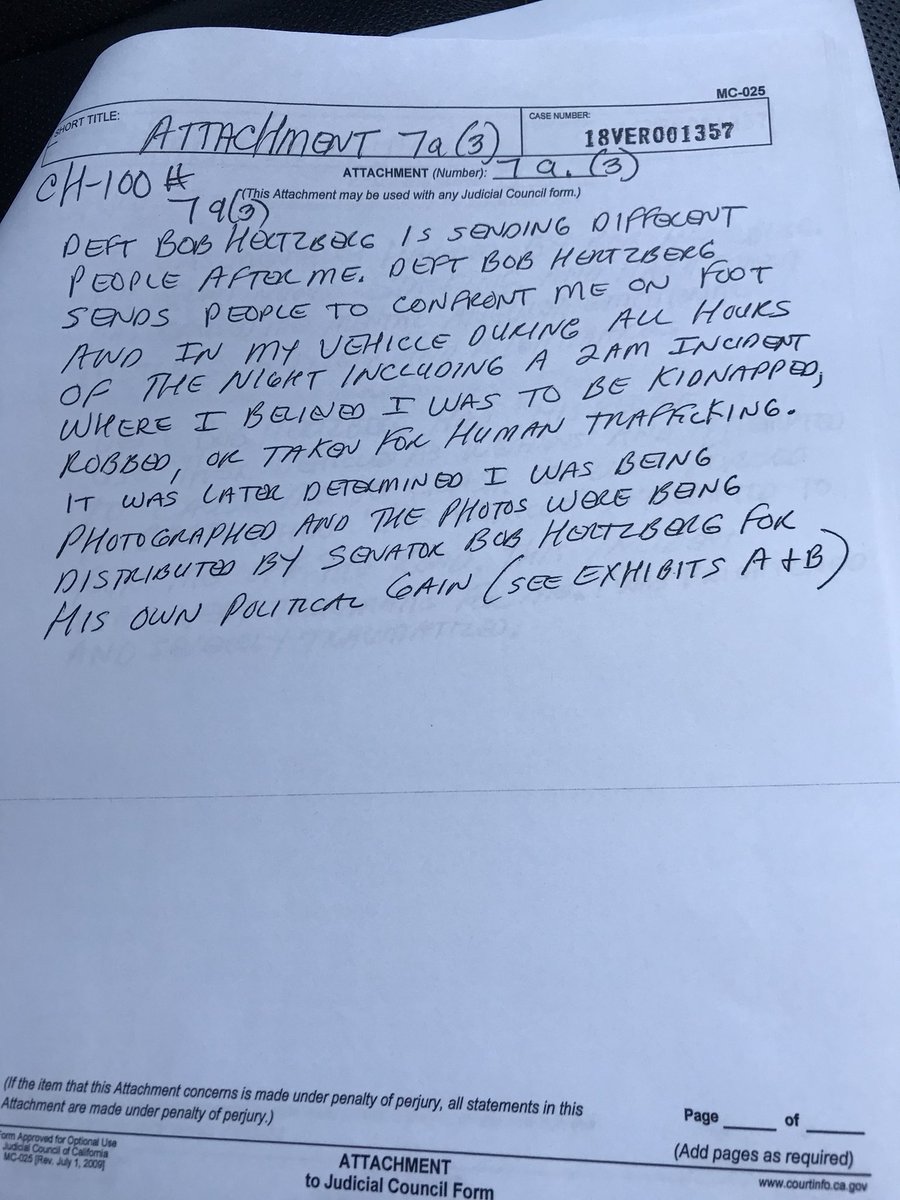 MC-025
SHORT TITLE:
ATTACHMENT 7a(3)
CASE NUMBER:
18VERO01357
ATTACHMENT (Number): 7a.(3)
(This Attachment may be used with any Judicial Council form.)
CH-100 #
7a(3)
DEFT BOB HERTZBERG IS SENDING DIFFERENT
PEOPLE AFTER ME. DEFT BOB HERTZBERG
SENDS PEOPLE TO CONFRONT ME ON FOOT
AND IN MY VEHICLE DURING ALL HOURS
OF THE NIGHT INCLUDING A 2AM INCIDENT
WHERE I BELIEVED I WAS TO BE KIDNAPPED,
ROBBED, OR TAKEN FOR HUMAN TRAFFICKING.
IT WAS LATER DETERMINED I WAS BEING
PHOTOGRAPHED AND THE PHOTOS WERE BEING
DISTRIBUTED BY SENATOR BOB HERTZBERG FOR
HIS OWN POLITICAL GAIN (SEE EXHIBITS A+B)
(If the item that this Attachment concerns is made under penalty of perjury, all statements in this
Attachment are made under penalty of perjury.)
Page ____ of ____
(Add pages as required)
Form Approved for Optional Use
Judicial Council of California
MC-025 [Rev. July 1, 2009]
ATTACHMENT
to Judicial Council Form
www.courtinfo.ca.gov